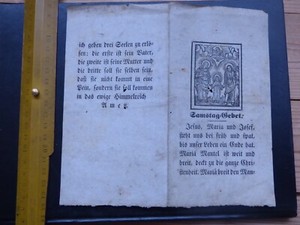 ich geben drei Seelen zu erlö-
sen: die erste ist sein Vater,
die zweite ist seine Mutter und
die dritte soll sie selben sein,
daß sie nicht kommt in ewe
Pein, sondern sie soll kommen
in das ewige Himmelreich
Amen.
Samstag-Gebet:
Jesus, Maria und Josef,
steht uns bei früh und spat,
bis unser Leben ein Ende hat.
Mariä Mantel ist weit und
breit, deckt zu die ganze Chri-
stenheit. Maria breit den Man-